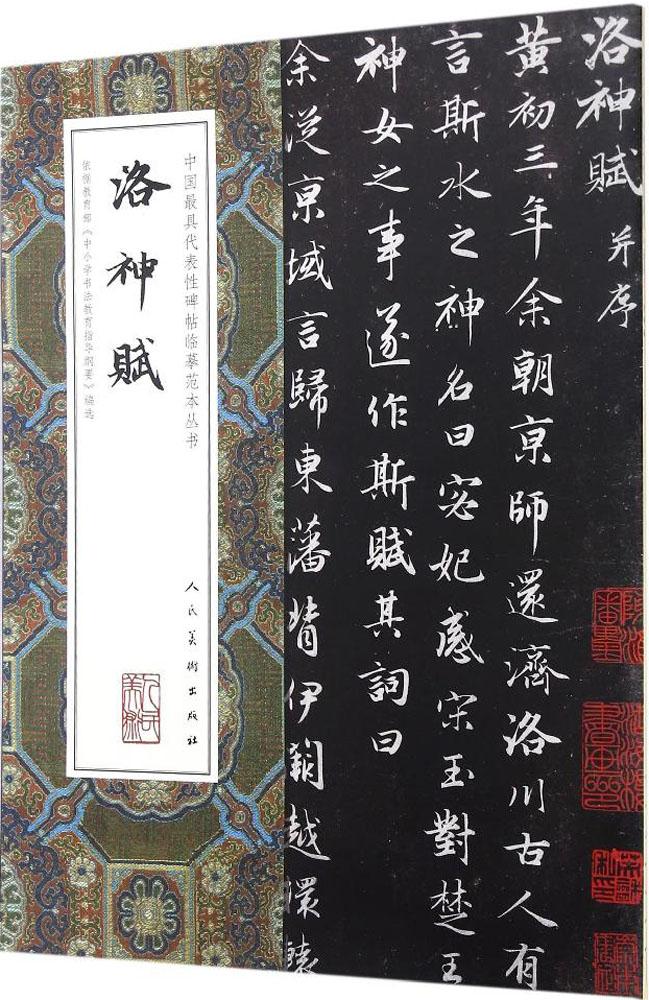 洛神賦 并序
黄初三年余朝京師還濟洛川古人有
言斯水之神名曰宓妃感宋玉對楚王
神女之事遂作斯賦其詞曰
余従京域言歸東藩背伊闕越轘轅
中国最具代表性碑帖临摹范本丛书
洛神賦
依据教育部《中小学书法教育指导纲要》编选
人民美術出版社
人民美術